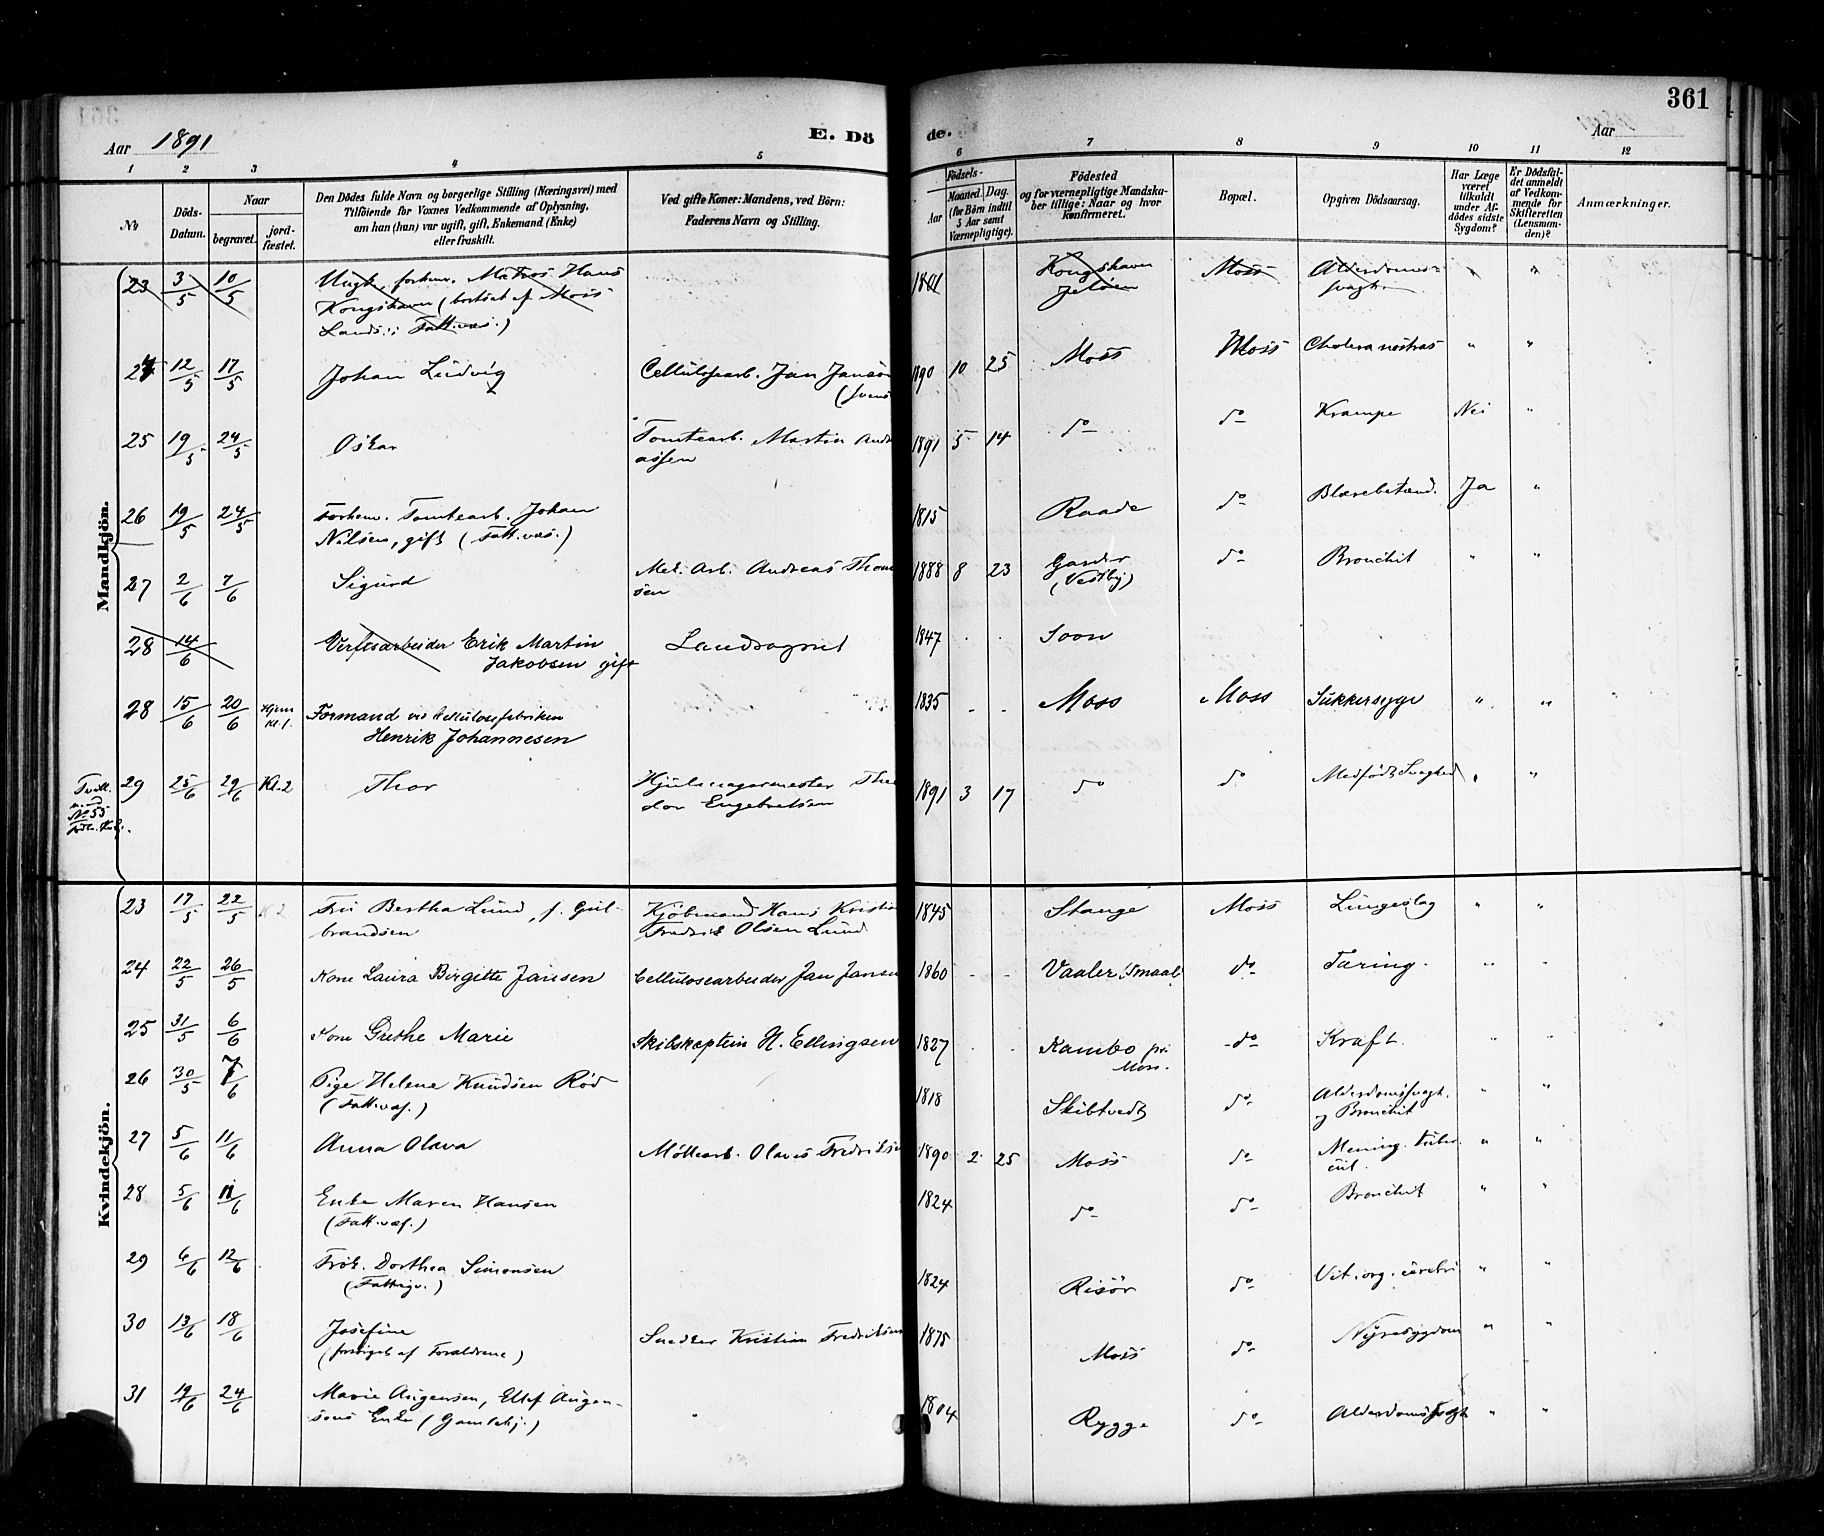 361
Aar 1891
E. Döde.
Aar
1 2 3 4 5 6 7 8 9 10 11 12
No
Döds-Datum.
Naar
begravet.
jordfæstet.
Den Dödes fulde Navn og borgerlige Stilling (Næringsvei) med
Tilföiende for Voxnes Vedkommende af Oplysning,
om han (hun) var ugift, gift, Enkemand (Enke)
eller fraskilt.
Ved gifte Koner: Mandens, ved Börn:
Faderens Navn og Stilling.
Födsels-
Aar
Maaned. Dag.
(for Börn indtil
5 Aar samt
Værnepligtige).
Födested
og for værnepligtige Mandskaber tillige: Naar og hvor
konfirmeret.
Bopæl.
Opgiven Dödsaarsag.
Har Læge
været
tilkaldt
under Afdödes sidste
Sygdom?
Er Dödsfaldet anmeldt
af Vedkommende for
Skifteretten
(Lensmanden)?
Anmærkninger.
Mandkjön.
23 3/5 10/5 Ungk. forhenv. Matros Hans 1801 Kongshavn Moss Alderdoms-
Kongshavn (bortsat af Moss Jelöen svagh.
Lands:s Fatt.væs.)
24 12/5 17/5 Johan Ludvig Cellulosearb. Jan Janson 1890 10 25 Moss Moss Cholera nostras " "
25 19/5 24/5 Oskar Tomtearb. Martin Andr 1891 5 14 do do Krampe Nei "
assen
26 19/5 24/5 Forhenv. Tomtearb. Johan 1815 Raade do Blærebetænd. Ja "
Nilsen, gift (Fatt.væs.)
27 2/6 7/6 Sigurd Mek. Arb. Andreas Thom 1888 8 23 Garder do Bronchit " "
sen (Vestby)
28 14/6 Verftsarbeider Erik Martin Landsognet 1847 Soon
Jakobsen gift
28 15/6 20/6 Hjem Kl 1. Formand ved Cellulosefabriken 1835 Moss Moss Sukkersyge " "
Henrik Johannesen
Tvill. m. d. No 55
29 25/6 29/6 Kl. 2 Thor Hjulmagermester Theo 1891 3 17 do do Medfödt Svaghed " "
dor Engebretsen
Kvindekjön.
23 17/5 22/5 K 2 Fru Bertha Lund, f. Gul- Kjöbmand Hans Kristian 1845 Stange Moss Lungeslag " "
brandsen Fredrik Olsen Lund
24 22/5 26/5 Kone Laura Birgitte Jansen Cellulosearbeider Jan Janse 1860 Vaaler (Smaal) do Tæring. " "
25 31/5 6/6 Kone Grethe Marie Skibskaptein H. Ellingsen 1827 Kambo pr. do Kræft. " "
Moss.
26 30/5 7/6 Pige Helene Knudsen Röd 1818 Skibtvedt do Alderdomssvagh. " "
(Fatt.væs.) og Bronchit
27 5/6 11/6 Anna Olava Möllearb. Olaves Fredriksen 1890 2 25 Moss do Mening. tuber- " "
cul.
28 5/6 11/6 Enke Maren Hansen 1824 do do Bronchit " "
(Fatt.væs.)
29 6/6 12/6 Frök. Dorthea Simonsen 1824 Risör do Vit. org. cerebri " "
(Fattigv.)
30 13/6 18/6 Josefine Snedker Kristian Fredriksen 1875 Moss do Nyresygdom " "
(forsörget af Forældrene)
31 19/6 24/6 Marie Augensen, Ellef Augen- 1804 Rygge do Alderdomssvagh " "
sens Enke (Gamlehj.)